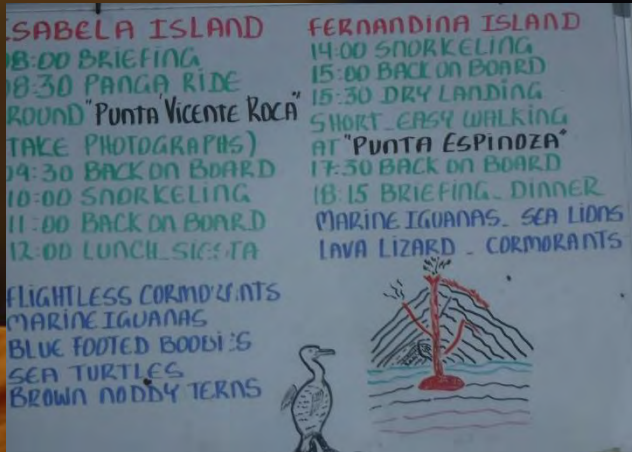 SABELA ISLAND
08:00 BRIEFING
08:30 PANGA RIDE
ROUND "PUNTA VICENTE ROCA"
TAKE PHOTOGRAPHS)
09:30 BACK ON BOARD
10:00 SNORKELING
11:00 BACK ON BOARD
12:00 LUNCH_SIESTA
FLIGHTLESS CORMORANTS
MARINE IGUANAS
BLUE FOOTED BOOBIES
SEA TURTLES
BROWN NODDY TERNS
FERNANDINA ISLAND
14:00 SNORKELING
15:00 BACK ON BOARD
15:30 DRY LANDING
SHORT_EASY WALKING
AT "PUNTA ESPINOZA"
17:30 BACK ON BOARD
18:15 BRIEFING_DINNER
MARINE IGUANAS_SEA LIONS
LAVA LIZARD_CORMORANTS